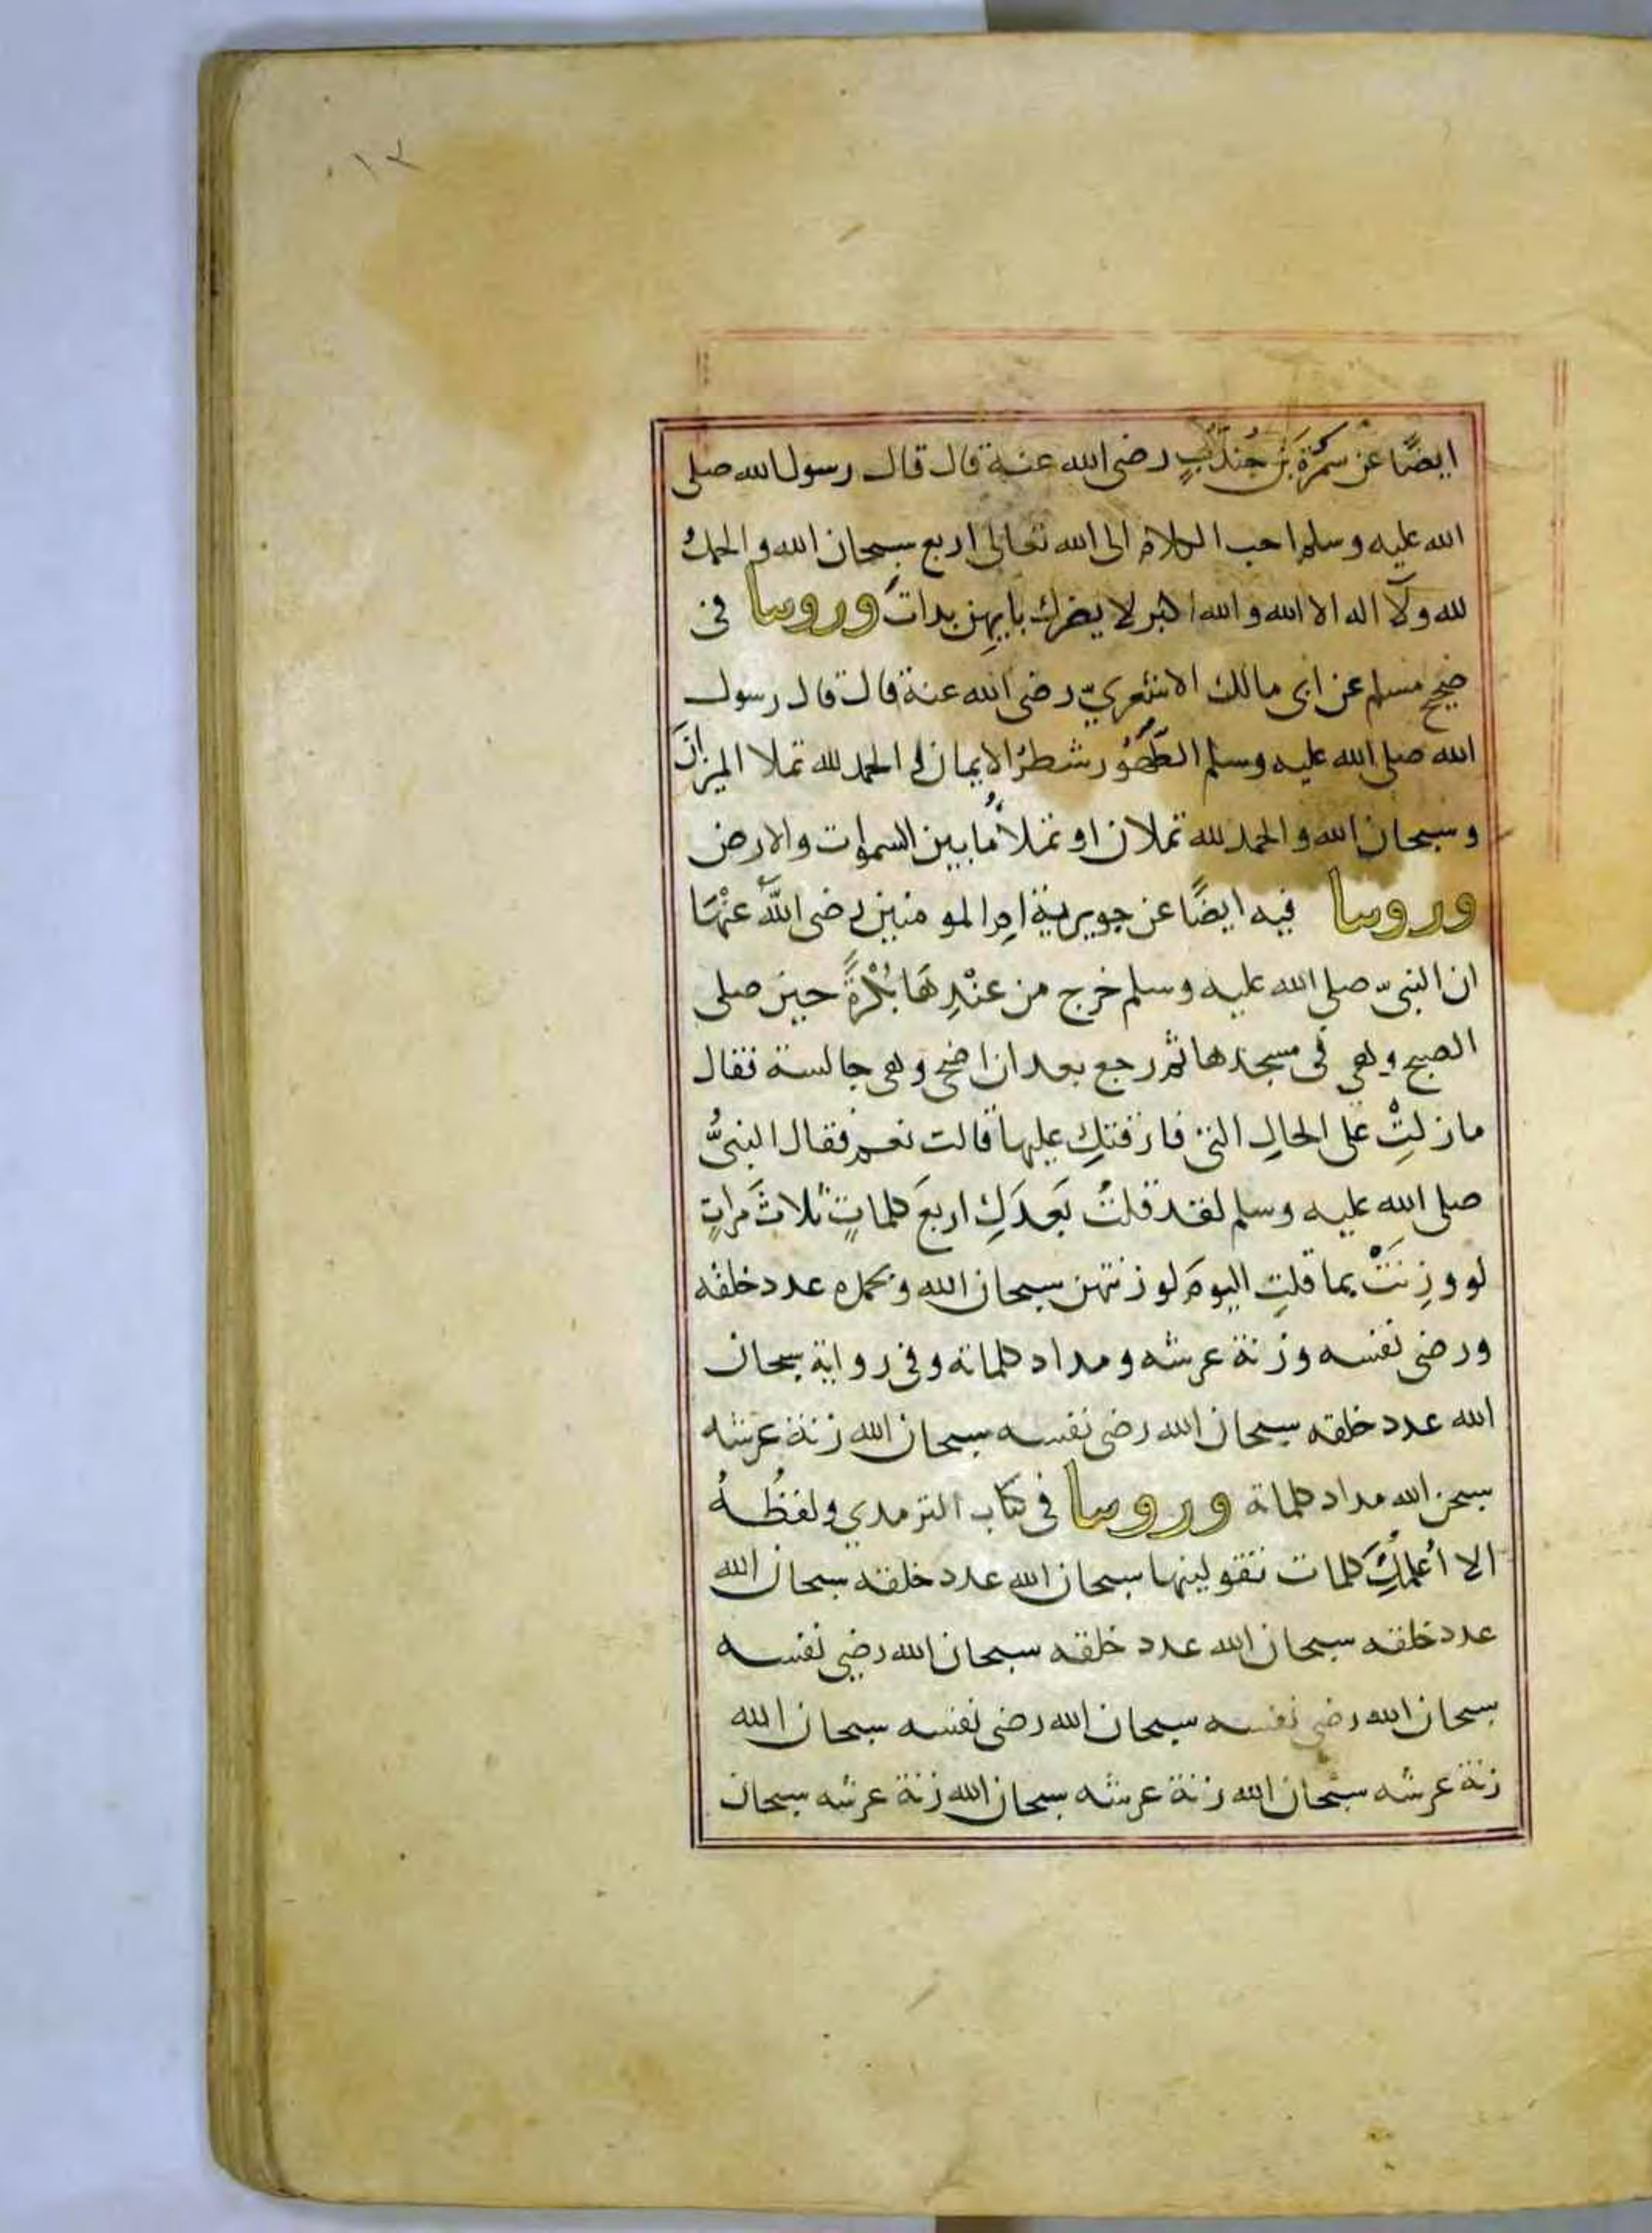 ٠١٢
ايضًا عن سمُرَة بن جُندَبٍ رضى الله عنه قال قال رسول الله صلى
الله عليه وسلم احب الكلام الى الله تعالى اربع سبحان الله والحمدُ
لله ولا اله الا الله والله اكبر لا يضرك بايهن بدات وروينا فى
صحيح مسلم عن ابى مالك الاشعريّ رضى الله عنه قال قال رسول
الله صلى الله عليه وسلم الطُّهُور شطرُ الايمان والحمد لله تملا الميزانَ
وسبحان الله والحمد لله تملان او تملأُ ما بين السموات والارض
وروينا فيه ايضًا عن جويرية ام المومنين رضى اللهُ عنْهَا
ان النبىّ صلى الله عليه وسلم خرج من عنْدِهَا بُكْرَةً حين صلى
الصبح وهى فى مسجدها ثم رجع بعد ان اضحى وهى جالسة فقال
ما زلتِْ على الحالِ التى فارقتكِ عليها قالت نعم فقال النبىُّ
صلى الله عليه وسلم لقد قلتُ بَعدَكِ اربعَ كلماتٍ ثلاثَ مراتٍ
لو وزِنَتْ بما قلتِ اليومَ لوزنتهن سبحان الله وبحمده عدد خلقه
ورضى نفسه وزنة عرشه ومداد كلماته وفى رواية سبحان
الله عدد خلقه سبحان الله رضى نفسه سبحان الله زنة عرشه
سبحن الله مداد كلماته وروينا فى كتاب الترمدي ولفظُهُ
الا أُعلمكِ كلمات تقولينها سبحان الله عدد خلقه سبحان الله
عدد خلقه سبحان الله عدد خلقه سبحان الله رضى نفسه
سبحان الله رضى نفسه سبحان الله رضى نفسه سبحان الله
زنة عرشه سبحان الله زنة عرشه سبحان الله زنة عرشه سبحان